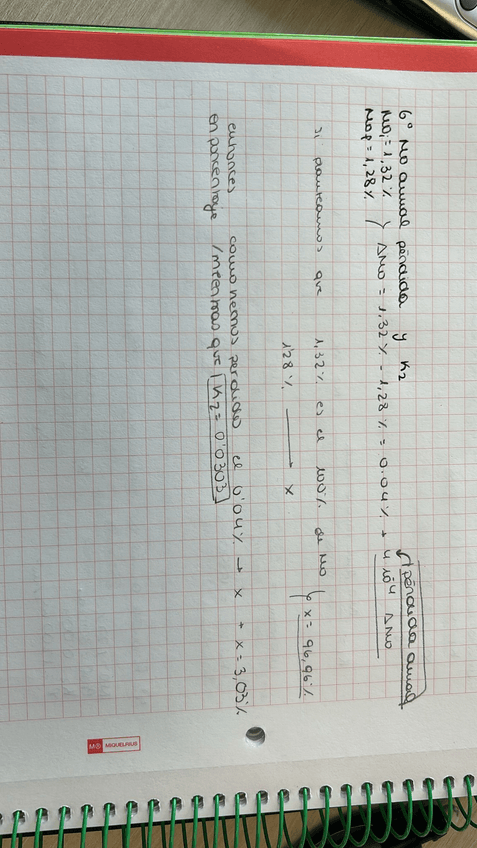 6º MO anual pérdida y K2
MOi = 1,32% } ΔMO = 1,32% - 1,28% = 0.04% → 4·10⁻⁴ ΔMO
MOf = 1,28%
pérdida anual
si planteamos que 1,32% es el 100% de MO } x = 96,96%
1'28% → x
entonces como hemos perdido el 0'04% → x → x = 3,03%
en porcentaje / mientras que K2 = 0'0303
MIQUELRIUS